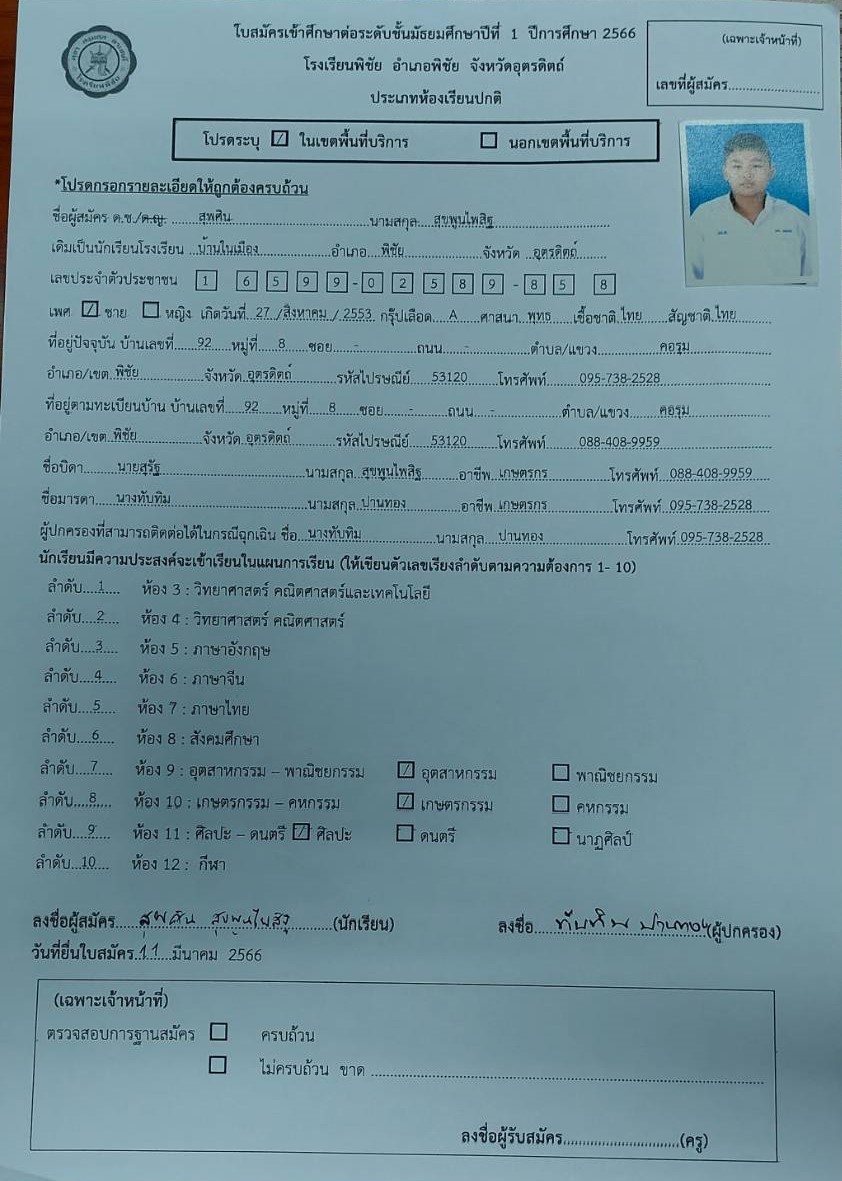 ใบสมัครเข้าศึกษาต่อระดับชั้นมัธยมศึกษาปีที่ 1 ปีการศึกษา 2566
(เฉพาะเจ้าหน้าที่)
โรงเรียนพิชัย อำเภอพิชัย จังหวัดอุตรดิตถ์
เลขที่ผู้สมัคร
ประเภทห้องเรียนปกติ
โปรดระบุ ในเขตพื้นที่บริการ นอกเขตพื้นที่บริการ
*โปรดกรอกรายละเอียดให้ถูกต้องครบถ้วน
ชื่อผู้สมัคร ด.ช./ด.ญ. สุพศิน นามสกุล สุขพูนไพสิฐ
เดิมเป็นนักเรียนโรงเรียน บ้านในเมือง อำเภอ พิชัย จังหวัด อุตรดิตถ์
เลขประจำตัวประชาชน 1 6 5 9 9 - 0 2 5 8 9 - 8 5 8
เพศ ชาย หญิง เกิดวันที่ 27 /สิงหาคม / 2553 กรุ๊ปเลือด A ศาสนา พุทธ เชื้อชาติ ไทย สัญชาติ ไทย
ที่อยู่ปัจจุบัน บ้านเลขที่ 92 หมู่ที่ 8 ซอย - ถนน - ตำบล/แขวง คอรุม
อำเภอ/เขต พิชัย จังหวัด อุตรดิตถ์ รหัสไปรษณีย์ 53120 โทรศัพท์ 095-738-2528
ที่อยู่ตามทะเบียนบ้าน บ้านเลขที่ 92 หมู่ที่ 8 ซอย - ถนน - ตำบล/แขวง คอรุม
อำเภอ/เขต พิชัย จังหวัด อุตรดิตถ์ รหัสไปรษณีย์ 53120 โทรศัพท์ 088-408-9959
ชื่อบิดา นายสุรัฐ นามสกุล สุขพูนไพสิฐ อาชีพ เกษตรกร โทรศัพท์ 088-408-9959
ชื่อมารดา นางทับทิม นามสกุล ปานทอง อาชีพ เกษตรกร โทรศัพท์ 095-738-2528
ผู้ปกครองที่สามารถติดต่อได้ในกรณีฉุกเฉิน ชื่อ นางทับทิม นามสกุล ปานทอง โทรศัพท์ 095-738-2528
นักเรียนมีความประสงค์จะเข้าเรียนในแผนการเรียน (ให้เขียนตัวเลขเรียงลำดับตามความต้องการ 1- 10)
ลำดับ 1 ห้อง 3 : วิทยาศาสตร์ คณิตศาสตร์และเทคโนโลยี
ลำดับ 2 ห้อง 4 : วิทยาศาสตร์ คณิตศาสตร์
ลำดับ 3 ห้อง 5 : ภาษาอังกฤษ
ลำดับ 4 ห้อง 6 : ภาษาจีน
ลำดับ 5 ห้อง 7 : ภาษาไทย
ลำดับ 6 ห้อง 8 : สังคมศึกษา
ลำดับ 7 ห้อง 9 : อุตสาหกรรม – พาณิชยกรรม อุตสาหกรรม พาณิชยกรรม
ลำดับ 8 ห้อง 10 : เกษตรกรรม – คหกรรม เกษตรกรรม คหกรรม
ลำดับ 9 ห้อง 11 : ศิลปะ – ดนตรี ศิลปะ ดนตรี นาฏศิลป์
ลำดับ 10 ห้อง 12 : กีฬา
ลงชื่อผู้สมัคร สุพศิน สุขพูนไพสิฐ (นักเรียน) ลงชื่อ ทับทิม ปานทอง (ผู้ปกครอง)
วันที่ยื่นใบสมัคร 11 มีนาคม 2566
(เฉพาะเจ้าหน้าที่)
ตรวจสอบการฐานสมัคร ครบถ้วน
ไม่ครบถ้วน ขาด
ลงชื่อผู้รับสมัคร (ครู)